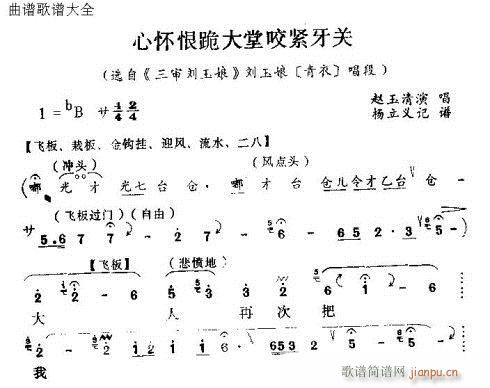 曲谱歌谱大全
心怀恨跪大堂咬紧牙关
(选自《三审刘玉娘》刘玉娘〔青衣〕唱段)
1=bB サ 1/4 2/4
赵玉清演 唱
杨立义记 谱
【飞板、栽板、仓钩挂、迎风、流水、二八】
(冲头) (风点头)
嘟 光 才 光 七 台 仓 · 嘟 才 台 仓 儿 令 才 乙 台 仓 -
(飞板过门)(自由)
サ 5·6 7 7 - 2 7 - 2 - 6 - 65 2·3 5 -
【飞板】 (悲愤地)
2 2 - 5 5 3 2 3 2 6 1 - 6
大 人 再 次 把
2 - 2·1 1·2 1 1 - 6· 653 2 - 6 - -
我
歌谱简谱网
jianpu.cn